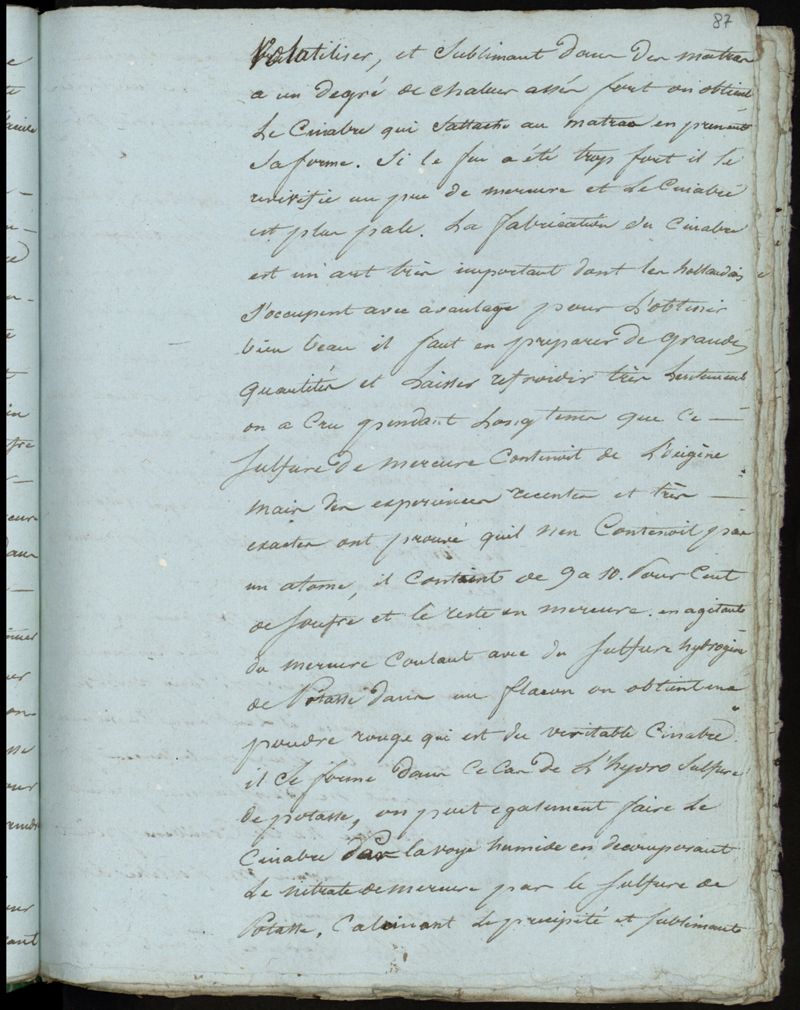 87
Volatiliser, et Sublimant dans des matras
a un degré de chaleur assés fort on obtient
Le Cinabre qui Sattache au matras en prenant
Sa forme. Si le feu a été trop fort il Se
revivifie un peu de mercure et Le Cinabre
est plus pale. La fabrication du Cinabre
est un art très important dont les hollandais
S'occupent avec avantage pour L'obtenir
bien beau il faut en preparer de grandes
quantités et Laisser refroidir très Lentement
on a Cru pendant Longtems que Ce —
Sulfure de mercure Contenoit de L'oxigène
mais des experiences recentes et très —
exactes ont prouvé quil n'en Contenoit pas
un atome, il Contient de 9 a 10. Pour Cent
de Soufre et le reste en mercure. en agitant
du mercure Coulant avec du Sulfure hydrogéné
de Potasse dans un flacon on obtient une
poudre rouge qui est du veritable Cinabre.
il Se forme dans Ce Cas de L'hydro Sulfure
de potasse, on peut egalement faire Le
Cinabre par la voye humide en decomposant
Le nitrate de mercure par le Sulfure de
Potasse, Calcinant Le precipité et Sublimant